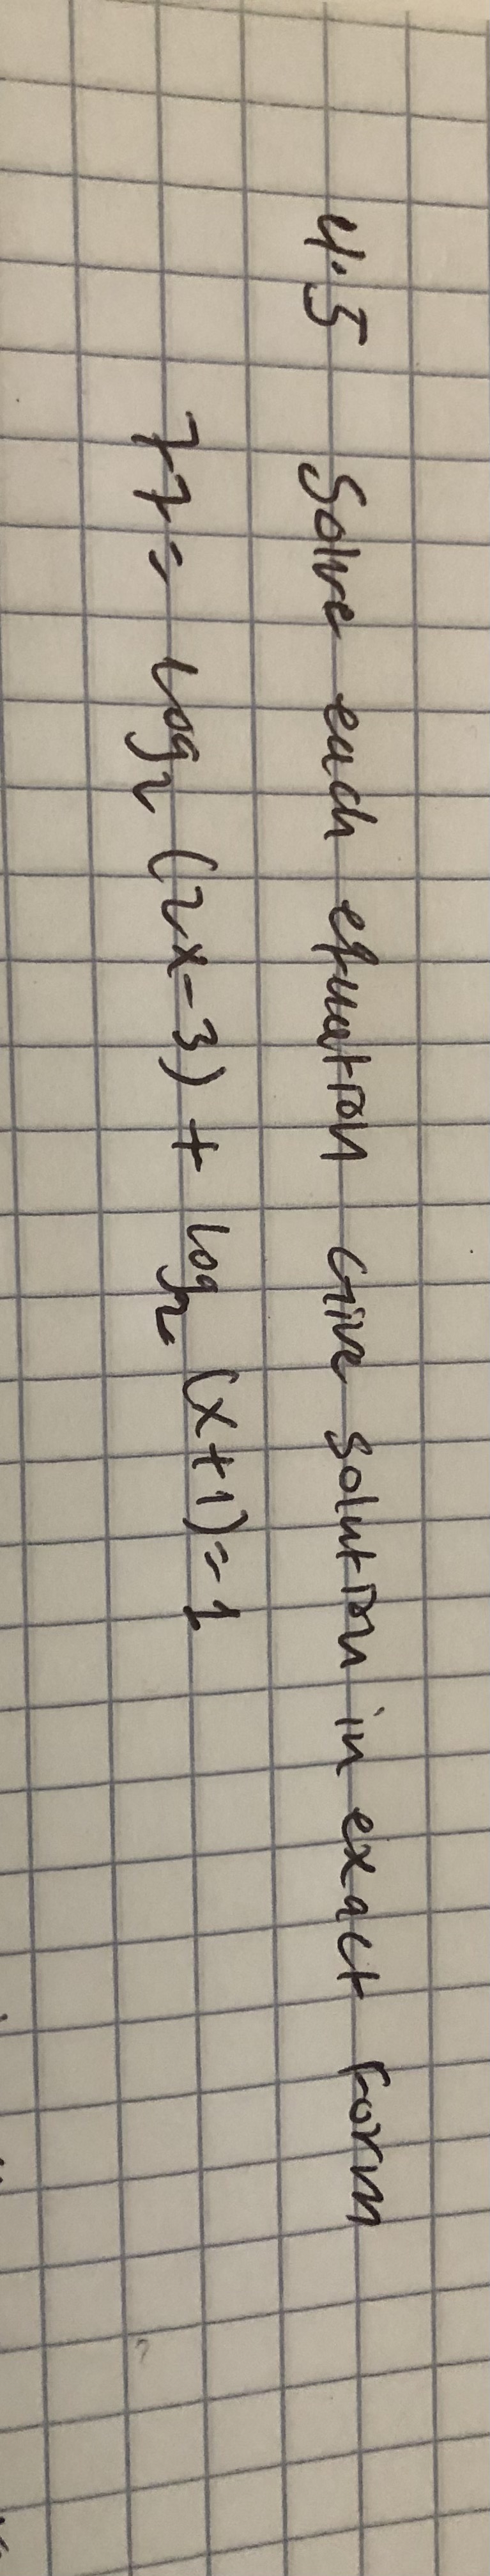 4.5 Solve each equation Give solution in exact form
77= log₂ (2x-3) + log₂ (x+1)=1